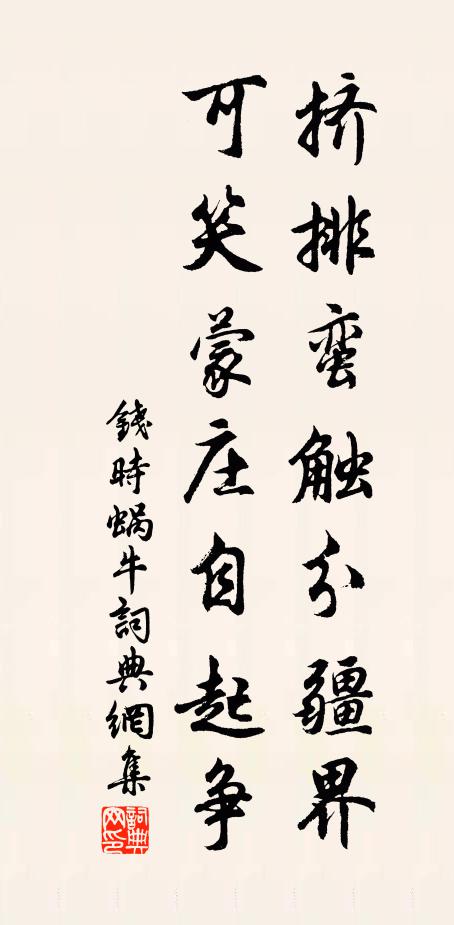 挤排蛮触分疆界
可笑蒙庄自起争
錢時蜗牛詞典網集
詞典网印